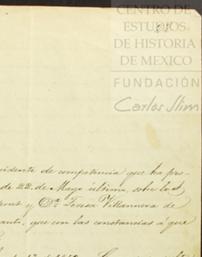 CENTRO DE
ESTUDIOS
DE HISTORIA
DE MEXICO
FUNDACIÓN
Carlos Slim
idente de competencia que ha pro-
de 22 de Mayo último, sobre la
y Dª Teresa Villanueva de
que con las constancias a que